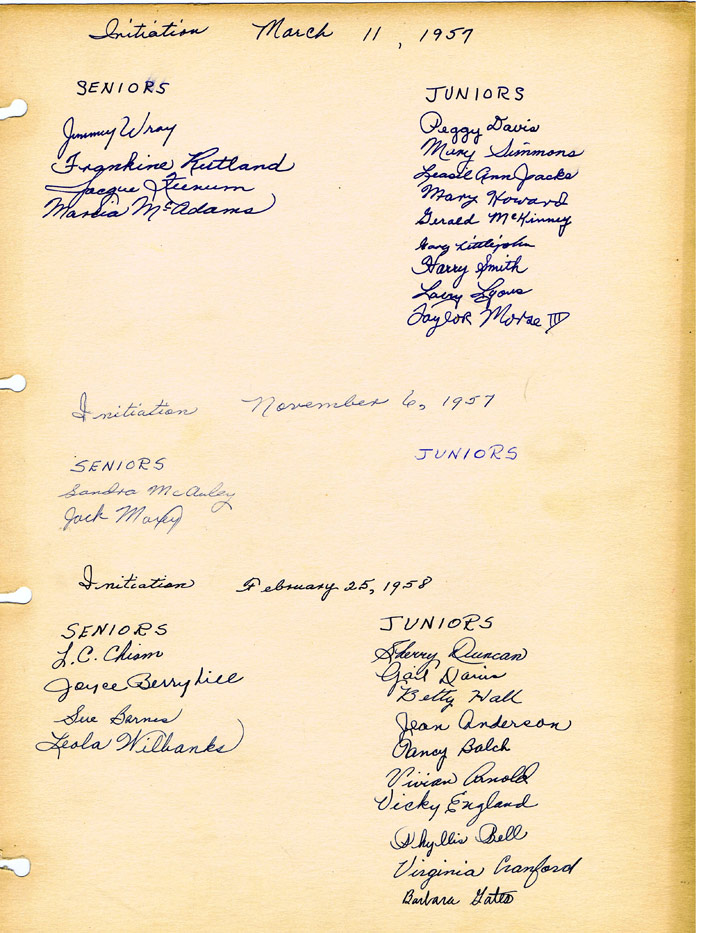 Initiation March 11, 1957
SENIORS
Jimmy Wray
Frankine Rutland
Jacque
Marcia McAdams
JUNIORS
Peggy Davis
Mary Simmons
Ann Jacks
Mary Howard
Gerald McKinney
Gary Littlejohn
Harry Smith
Larry Lyons
Taylor Morse III
Initiation November 6, 1957
SENIORS
Sandra McAuley
Jack Maxey
JUNIORS
Initiation February 25, 1958
SENIORS
L.C. Chism
Joyce Berryhill
Sue Barnes
Leola Wilbanks
JUNIORS
Sherry Duncan
Gail Davis
Betty Hall
Jean Anderson
Nancy Balch
Vivian Arnold
Vicky England
Phyllis Bell
Virginia Cranford
Barbara Gates